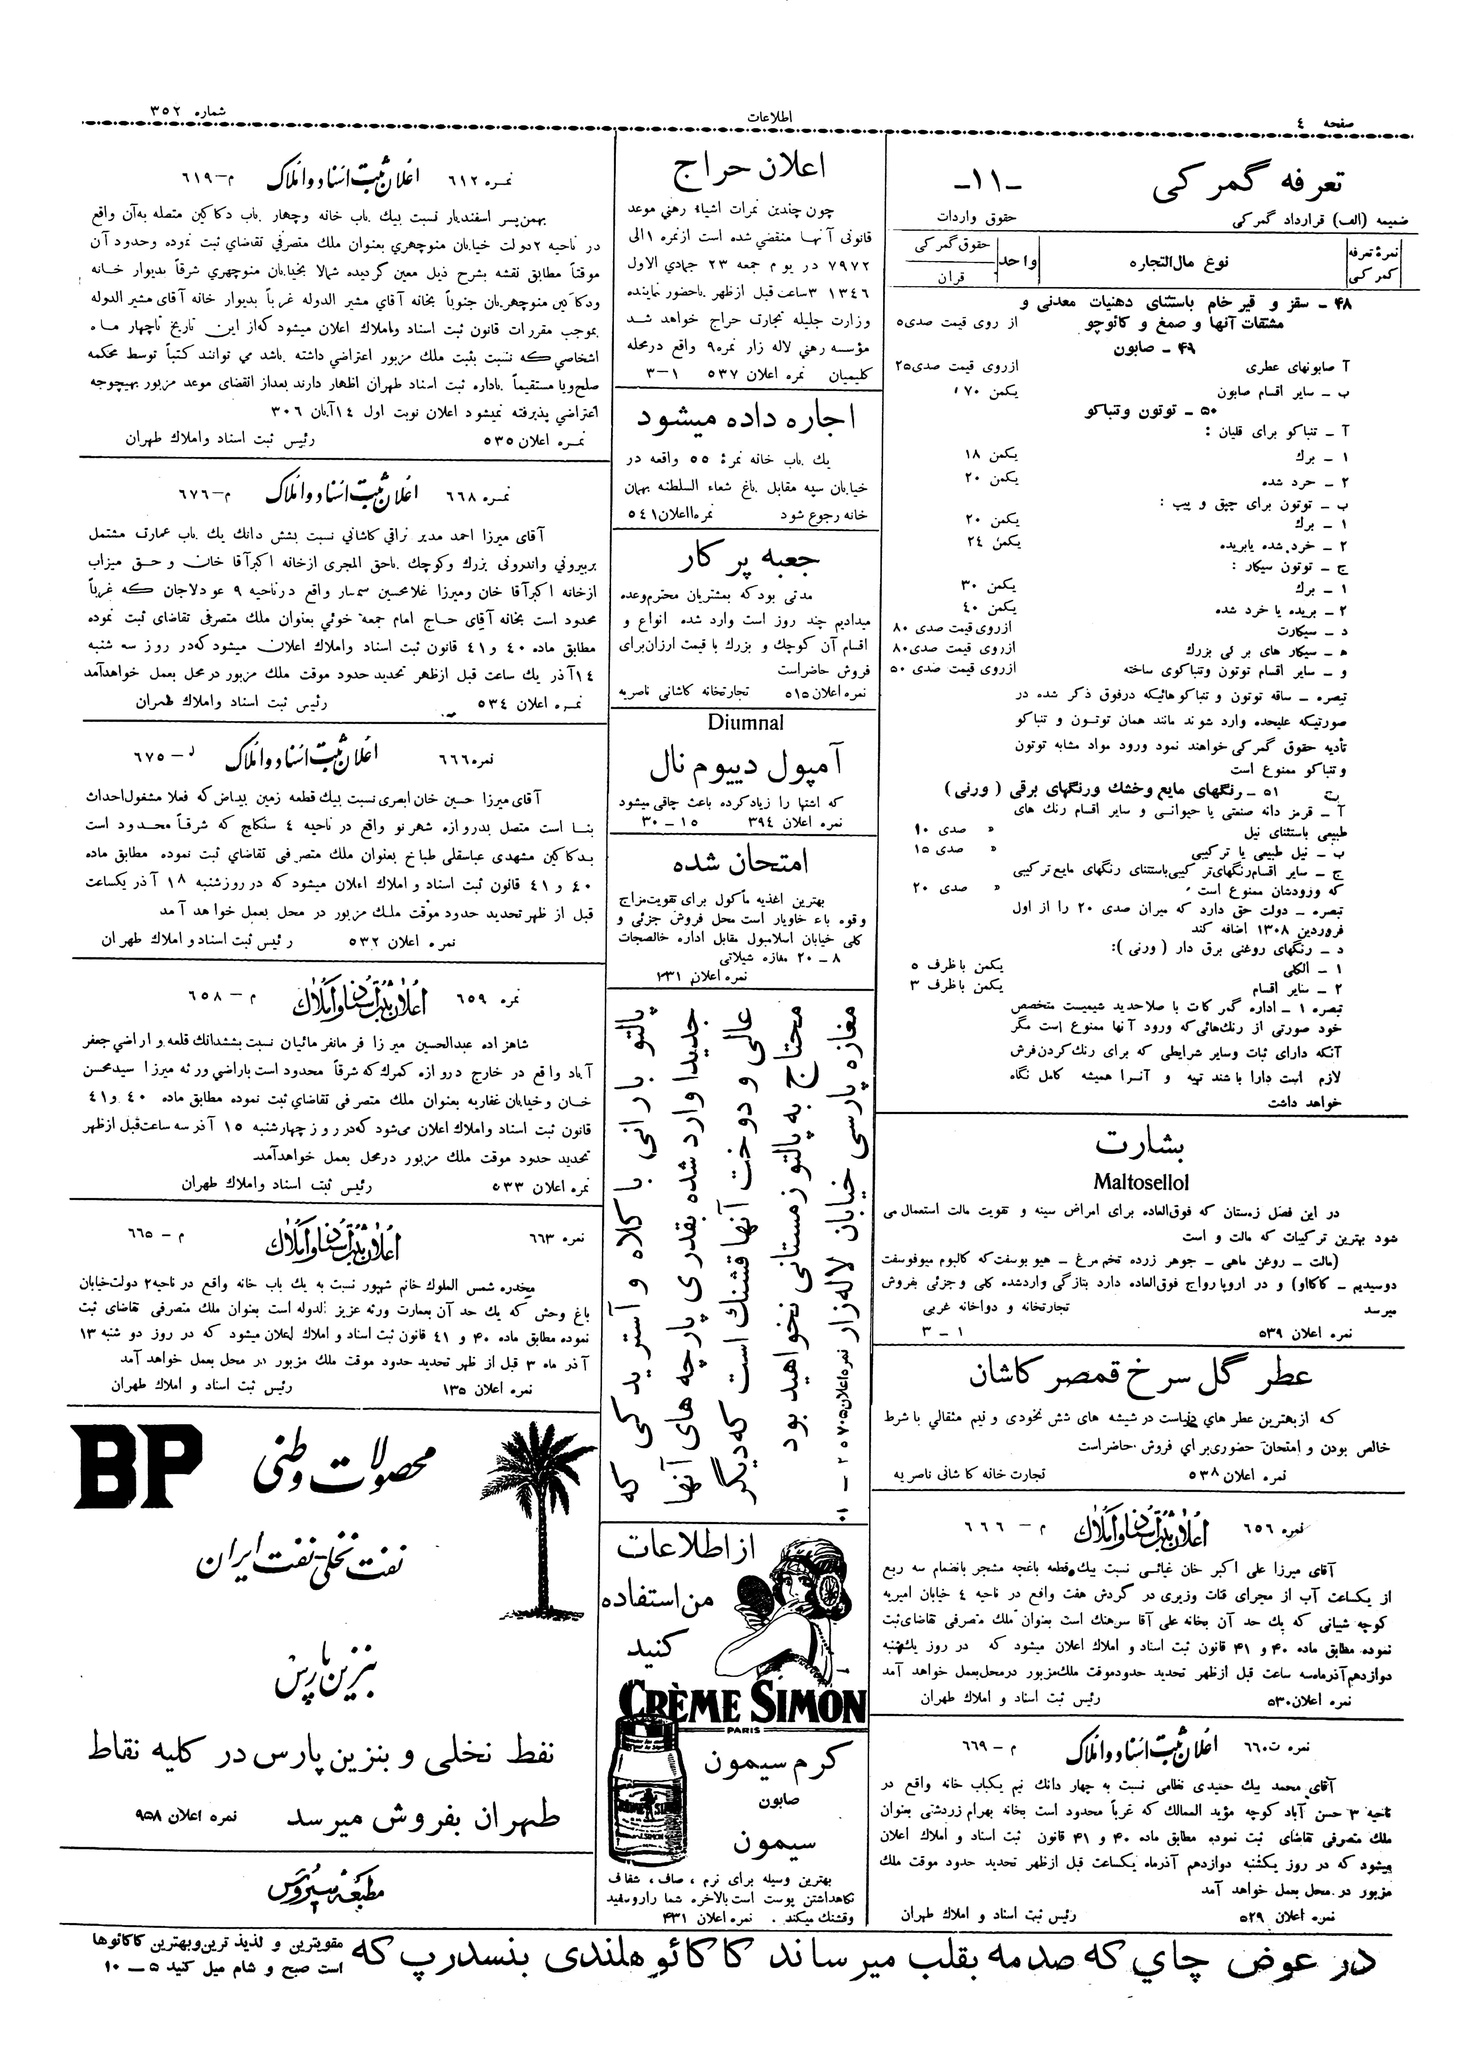 صفحه ٤
اطلاعات
شماره ۳۵۲
تعرفه گمرکی
-۱۱-
ضمیمه (الف) قرارداد گمرکی
حقوق واردات
نمرهٔ تعرفه گمرکی
نوع مال‌التجاره
واحد
حقوق گمرکی
قران
۴۸ ـ سقز و قیر خام باستثنای دهنیات معدنی و
مشتقات آنها و صمغ و کائوچو
از روی قیمت صدی۵
۴۹ ـ صابون
آ صابونهای عطری
ازروی قیمت صدی۲۵
ب ـ سایر اقسام صابون
یکمن ۷۰
۵۰ ـ توتون وتنباکو
آ ـ تنباکو برای قلیان :
۱ ـ برك
یکمن ۱۸
۲ ـ خرد شده
یکمن ۲۰
ب ـ توتون برای چپق و پیپ :
۱ ـ برك
یکمن ۲۰
۲ ـ خرد شده یابریده
یکمن ۲٤
ج ـ توتون سیگار :
۱ ـ برك
یکمن ۳۰
۲ـ بریده یا خرد شده
یکمن ٤۰
د ـ سیگارت
ازروی قیمت صدی ۸۰
ه ـ سیگار های بر گی بزرك
ازروی قیمت صدی۸۰
و ـ سایر اقسام توتون وتنباکوی ساخته
ازروی قیمت صدی ۵۰
تبصره ـ ساقه توتون و تنباکو هائیکه درفوق ذکر شده در
صورتیکه علیحده وارد شوند مانند همان توتون و تنباکو
تأدیه حقوق گمرکی خواهند نمود ورود مواد مشابه توتون
وتنباکو ممنوع است
۵۱ ـ رنگهای مایع وخشك ورنگهای برقی ( ورنی )
آ ـ قرمز دانه صنعتی یا حیوانی و سایر اقسام رنك های
طبیعی باستثنای نیل
« صدی ۱۰
ب ـ نیل طبیعی یا ترکیبی
« صدی ۱۵
ج ـ سایر اقسام‌رنگهای‌ترکیبی‌باستثنای رنگهای مایع‌ترکیبی
که ورودشان ممنوع است
« صدی ۲۰
تبصره ـ دولت حق دارد که میزان صدی ۲۰ را از اول
فروردین ۱۳۰۸ اضافه کند
د ـ رنگهای روغنی برق دار ( ورنی ):
۱ ـ الکلی
یکمن باظرف ۵
۲ ـ سایر اقسام
یکمن باظرف ۳
تبصره ۱ ـ اداره گمرکات با صلاحدید شیمیست متخصص
خود صورتی از رنك‌هائی‌که ورود آنها ممنوع است مگر
آنکه دارای ثبات وسایر شرایطی که برای رنك‌کردن‌فرش
لازم است دارا باشند تهیه و آنرا همیشه کامل نگاه
خواهد داشت
بشارت
Maltosellol
در این فصل زمستان که فوق‌العاده برای امراض سینه و تقویت مالت استعمال می
شود بهترین ترکیبات که مالت و است
(مالت ـ روغن ماهی ـ جوهر زرده تخم مرغ ـ
دوسیدیم ـ کاکااو) و در اروپا رواج فوق‌العاده دارد بتازگی واردشده کلی وجزئی بفروش
میرسد
تجارتخانه و دواخانه غربی
نمره اعلان ۵۳۹
۱ - ۳
عطر گل سرخ قمصر کاشان
که ازبهترین عطر های دنیاست در شیشه های شش نخودی و نیم مثقالی با شرط
خالص بودن و امتحان حضوری‌برای فروش حاضراست
نمره اعلان ۵۳۸
تجارت خانه کاشانی ناصریه
نمره ٦٥٦
اعلان ثبت اسناد و املاك
م - ٦٦٦
آقای میرزا علی اکبر خان غیاثی نسبت بیك قطعه باغچه مشجر بانضمام سه ربع
از یکساعت آب از مجرای قنات وزیری در گردش هفت واقع در ناحیه ٤ خیابان امیریه
کوچه شیبانی که یك حد آن بخانه علی آقا سرهنك است بعنوان ملك متصرفی تقاضای‌ثبت
نموده مطابق ماده ۴۰ و ۴۱ قانون ثبت اسناد و املاك اعلان میشود که در روز یك‌شنبه
دوازدهم‌آذرماه‌سه ساعت قبل ازظهر تحدید حدودموقت ملك‌مزبور درمحل‌بعمل خواهد آمد
نمره اعلان۵۳۰
رئیس ثبت اسناد و املاك طهران
نمره ت٦٦۰
اعلان ثبت اسناد و املاك
م - ٦٦۹
آقای محمد بیك حمیدی نظامی نسبت به چهار دانك نیم یکباب خانه واقع در
ناحیه ۳ حسن آباد کوچه مؤید الممالك که غرباً محدود است بخانه بهرام زردشتی بعنوان
ملك متصرفی تقاضای ثبت نموده مطابق ماده ۴۰ و ۴۱ قانون ثبت اسناد و املاك اعلان
میشود که در روز یکشنبه دوازدهم آذرماه یکساعت قبل ازظهر تحدید حدود موقت ملك
مزبور در محل بعمل خواهد آمد
نمره اعلان ۵۲۹
رئیس ثبت اسناد و املاك طهران
اعلان حراج
چون چندین نمرات اشیاء رهنی موعد
قانونی آنها منقضی شده است ازنمره ۱الی
۷۹۷۲ در یوم جمعه ۲۳ جمادی الاول
۱۳٤٦ ۳ساعت قبل ازظهر باحضور نماینده
وزارت جلیله تجارت حراج خواهد شد
مؤسسه رهنی لاله زار نمره۹ واقع درمحله
کلیمیان نمره اعلان ۵۳۷ ۱-۳
اجاره داده میشود
یك باب خانه نمرهٔ ۵۵ واقعه در
خیابان سپه مقابل باغ شعاء السلطنه بهمان
خانه رجوع شود نمرهااعلان۵٤۱
جعبه پرکار
مدتی بودکه بمشتریان محترم‌وعده
میدادیم چند روز است وارد شده انواع و
اقسام آن کوچك و بزرك با قیمت ارزان‌برای
فروش حاضراست
نمره اعلان ۵۱۵ تجارتخانه کاشانی ناصریه
Diumnal
آمپول دییوم نال
که اشتها را زیادکرده باعث چاقی میشود
نمره اعلان ۳۹٤ ۱۵ - ۳۰
امتحان شده
بهترین اغذیه مأکول برای تقویت‌مزاج
وقوه باء خاویار است محل فروش جزئی و
کلی خیابان اسلامبول مقابل اداره خالصجات
۸ - ۲۰ مغازه شیلاتی
نمره اعلان ۴۳۱
پالتو بارانی با کلاه و آستر یدکی که
جدیدا وارد شده بقدری پارچه های آنها
عالی و دوخت آنها قشنك است که دیگر
محتاج به پالتو زمستانی نخواهید بود
مغازه پارسی خیابان لاله‌زار
از اطلاعات
من استفاده
کنید
CRÈME SIMON
PARIS
کرم سیمون
صابون
سیمون
بهترین وسیله برای نرم ، صاف ، شفاف
نگاهداشتن پوست است بالاخره شما را روسفید
وقشنك میکند . نمره اعلان ۴۳۱
نمره ٦۱۲
اعلان ثبت اسناد و املاك
م-٦۱۹
بهمن‌پسر اسفندیار نسبت بیك باب خانه وچهار باب دکاکین متصله به‌آن واقع
در ناحیه ۲دولت خیابان منوچهری بعنوان ملك متصرفی تقاضای ثبت نموده وحدود آن
موقتاً مطابق نقشه بشرح ذیل معین گردیده شمالا بخیابان منوچهری شرقاً بدیوار خانه
ودکاکین منوچهربان جنوباً بخانه آقای مشیر الدوله غرباً بدیوار خانه آقای مشیر الدوله
بموجب مقررات قانون ثبت اسناد واملاك اعلان میشود که‌از این تاریخ تاچهار ماه
اشخاصی که نسبت بثبت ملك مزبور اعتراضی داشته باشد می توانند کتباً توسط محکمه
صلح‌ویا مستقیماً باداره ثبت اسناد طهران اظهار دارند بعداز انقضای موعد مزبور بهیچوجه
اعتراضی پذیرفته نمیشود اعلان نوبت اول ۱٤آبان ۳۰٦
نمره اعلان ۵۳۵
رئیس ثبت اسناد واملاك طهران
نمره ٦٦۸
اعلان ثبت اسناد و املاك
م- ٦۷٦
آقای میرزا احمد مدیر نراقی کاشانی نسبت بشش دانك یك باب عمارت مشتمل
بربیرونی واندرونی بزرك وکوچك باحق المجری ازخانه اکبرآقا خان و حق میزاب
ازخانه اکبرآقا خان ومیرزا غلامحسین سمسار واقع درناحیه ۹ عودلاجان که غرباً
محدود است بخانه آقای حاج امام جمعه خوئی بعنوان ملك متصرفی تقاضای ثبت نموده
مطابق ماده ٤۰ و٤۱ قانون ثبت اسناد واملاك اعلان میشودکه‌در روز سه شنبه
۱٤آذر یك ساعت قبل ازظهر تحدید حدود موقت ملك مزبور درمحل بعمل خواهدآمد
نمره اعلان ۵۳٤
رئیس ثبت اسناد واملاك طهران
نمره٦٦٦
اعلان ثبت اسناد و املاك
د- ٦۷۵
آقای میرزا حسین خان ابصری نسبت بیك قطعه زمین بیاض که فعلا مشغول‌احداث
بنا است متصل بدروازه شهرنو واقع در ناحیه ٤ سنگلج که شرقاً محدود است
بدکاکین مشهدی عباسقلی طباخ بعنوان ملك متصرفی تقاضای ثبت نموده مطابق ماده
٤۰ و ٤۱ قانون ثبت اسناد و املاك اعلان میشود که در روزشنبه ۱۸ آذر یکساعت
قبل از ظهر تحدید حدود موقت ملك مزبور در محل بعمل خواهد آمد
نمره اعلان ۵۳۲
رئیس ثبت اسناد و املاك طهران
نمره ٦۵۹
اعلان ثبت اسناد و املاك
م - ٦۵۸
شاهزاده عبدالحسین میرزا فرمانفرمائیان نسبت بششدانك قلعه واراضی جعفر
آباد واقع در خارج دروازه گمرك که شرقاً محدود است باراضی ورثه میرزا سیدمحسن
خان وخیابان غفاریه بعنوان ملك متصرفی تقاضای ثبت نموده مطابق ماده ٤۰ و٤۱
قانون ثبت اسناد واملاك اعلان می‌شود که‌در روز چهارشنبه ۱۵ آذر سه ساعت‌قبل ازظهر
تحدید حدود موقت ملك مزبور درمحل بعمل خواهدآمد
نمره اعلان ۵۳۳
رئیس ثبت اسناد واملاك طهران
نمره ٦٦۳
اعلان ثبت اسناد و املاك
م - ٦٦۵
مخدره شمس الملوك خانم شهپور نسبت به یك باب خانه واقع در ناحیه۲ دولت‌خیابان
باغ وحش که یك حد آن بعمارت ورثه عزیز الدوله است بعنوان ملك متصرفی تقاضای ثبت
نموده مطابق ماده ۴۰ و ۴۱ قانون ثبت اسناد و املاك اعلان میشود که در روز دو شنبه ۱۳
آذر ماه ۳ قبل از ظهر تحدید حدود موقت ملك مزبور در محل بعمل خواهد آمد
نمره اعلان ۱۳۵
رئیس ثبت اسناد و املاك طهران
BP
محصولات وطنی
نفت نخلی - نفت ایران
بنزین پارس
نفط نخلی و بنزین پارس در کلیه نقاط
طهران بفروش میرسد
نمره اعلان ۹۵۸
مطبعه سیروس
در عوض چای که صدمه بقلب میرساند کاکائو هلندی بنسدرپ که
مقویترین و لذیذ ترین‌وبهترین کاکائوها
است صبح و شام میل کنید ۵ - ۱۰